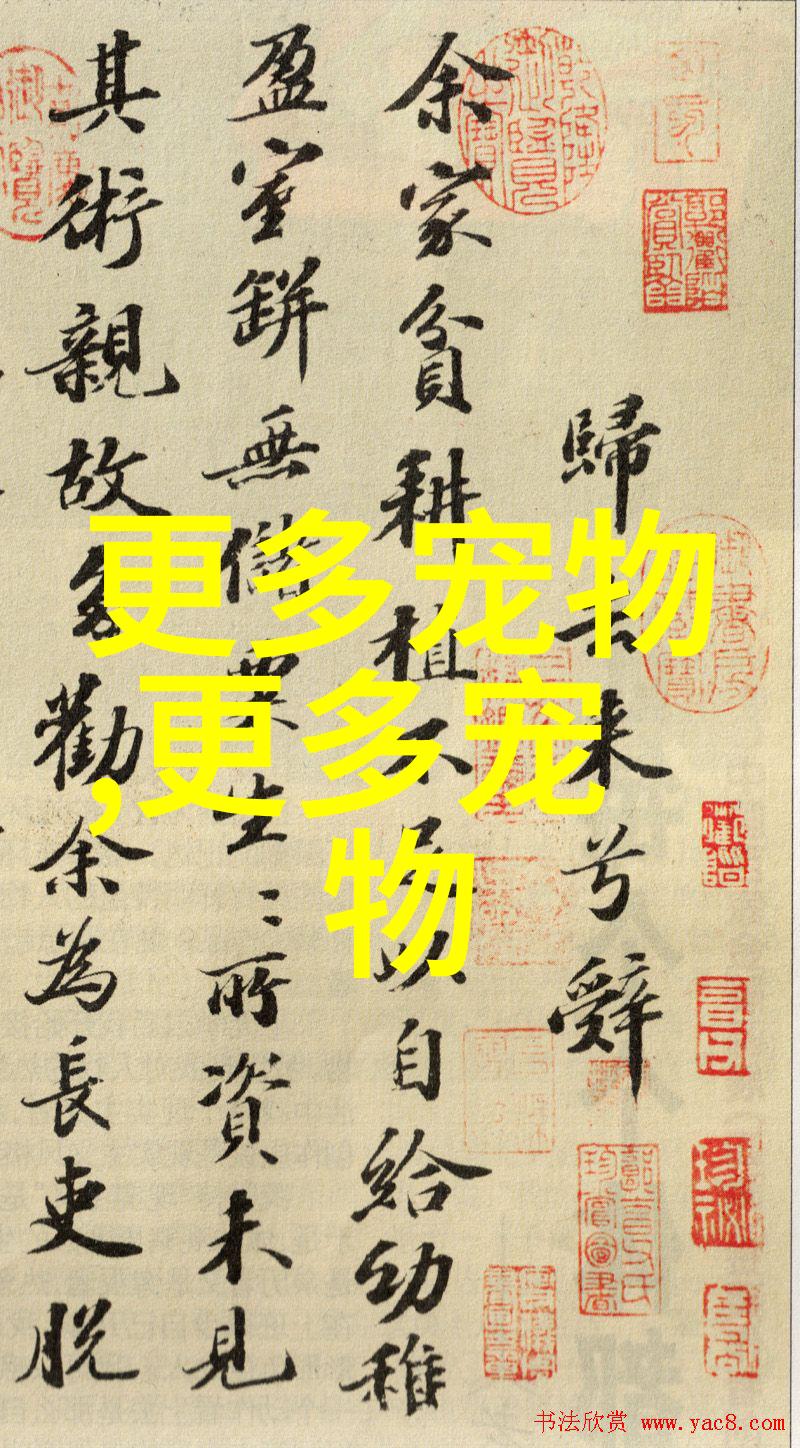 歸去来兮辭
余家貧耕植不足以自給幼稚
盈室缾無儲粟生〻所資未見
其術親故多勸余為長吏脫
更多宠物
,更多宠
物
书法欣赏 www.yac8.com